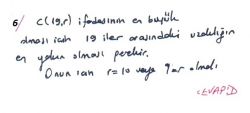 6/ C(19,r) ifadesinin en büyük
olması için 19 iler arasındaki uzaklığın
en yakın olması gerekir.
Onun için r=10 veya 9 ar olmalı
CEVAP:D